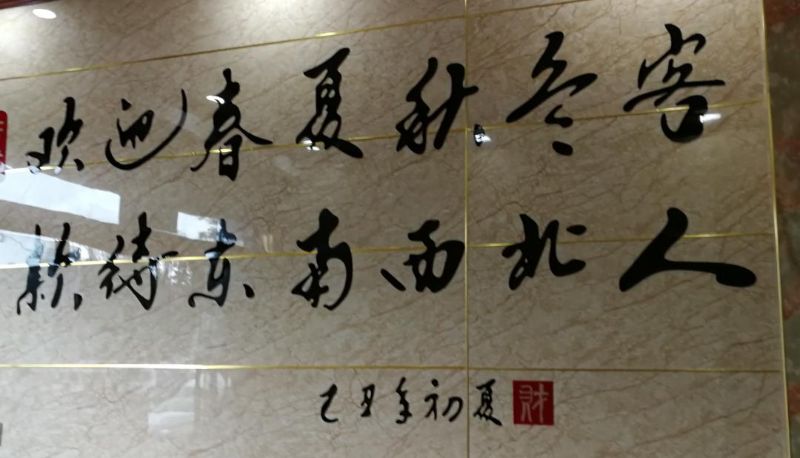 欢迎春夏秋冬客
款待东南西北人
乙丑年初夏
财